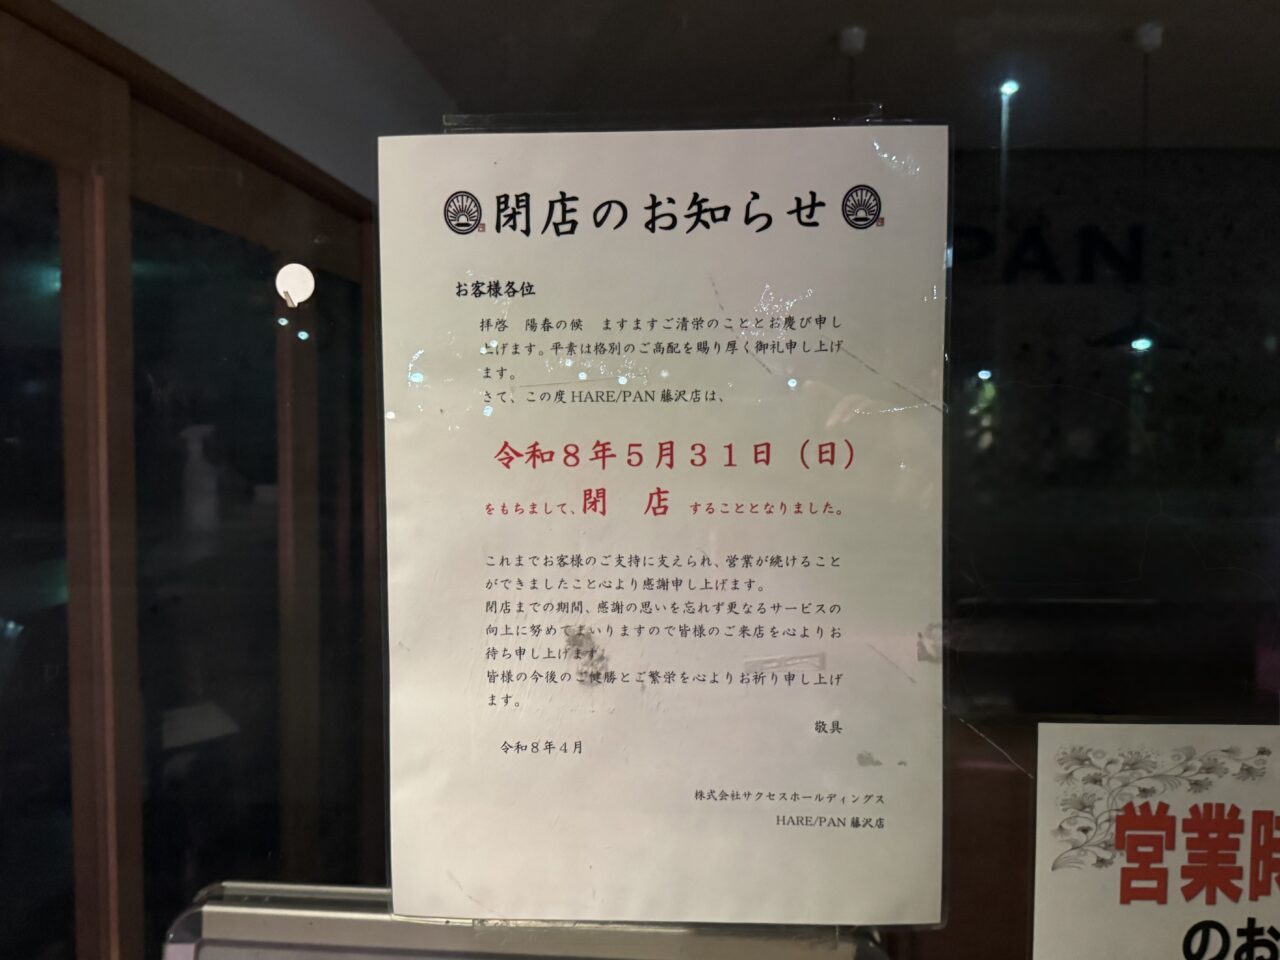 閉店のお知らせ
お客様各位
拝啓　陽春の候　ますますご清栄のこととお慶び申し
上げます。平素は格別のご高配を賜り厚く御礼申し上げ
ます。
さて、この度 HARE/PAN 藤沢店は、
令和８年５月３１日（日）
をもちまして、閉　店　することとなりました。
これまでお客様のご支持に支えられ、営業が続けること
ができましたこと心より感謝申し上げます。
閉店までの期間、感謝の思いを忘れず更なるサービスの
向上に努めてまいりますので皆様のご来店を心よりお
待ち申し上げます。
皆様の今後のご健勝とご繁栄を心よりお祈り申し上げ
ます。
敬具
令和８年４月
株式会社サクセスホールディングス
HARE/PAN 藤沢店
PAN
営業時
のお